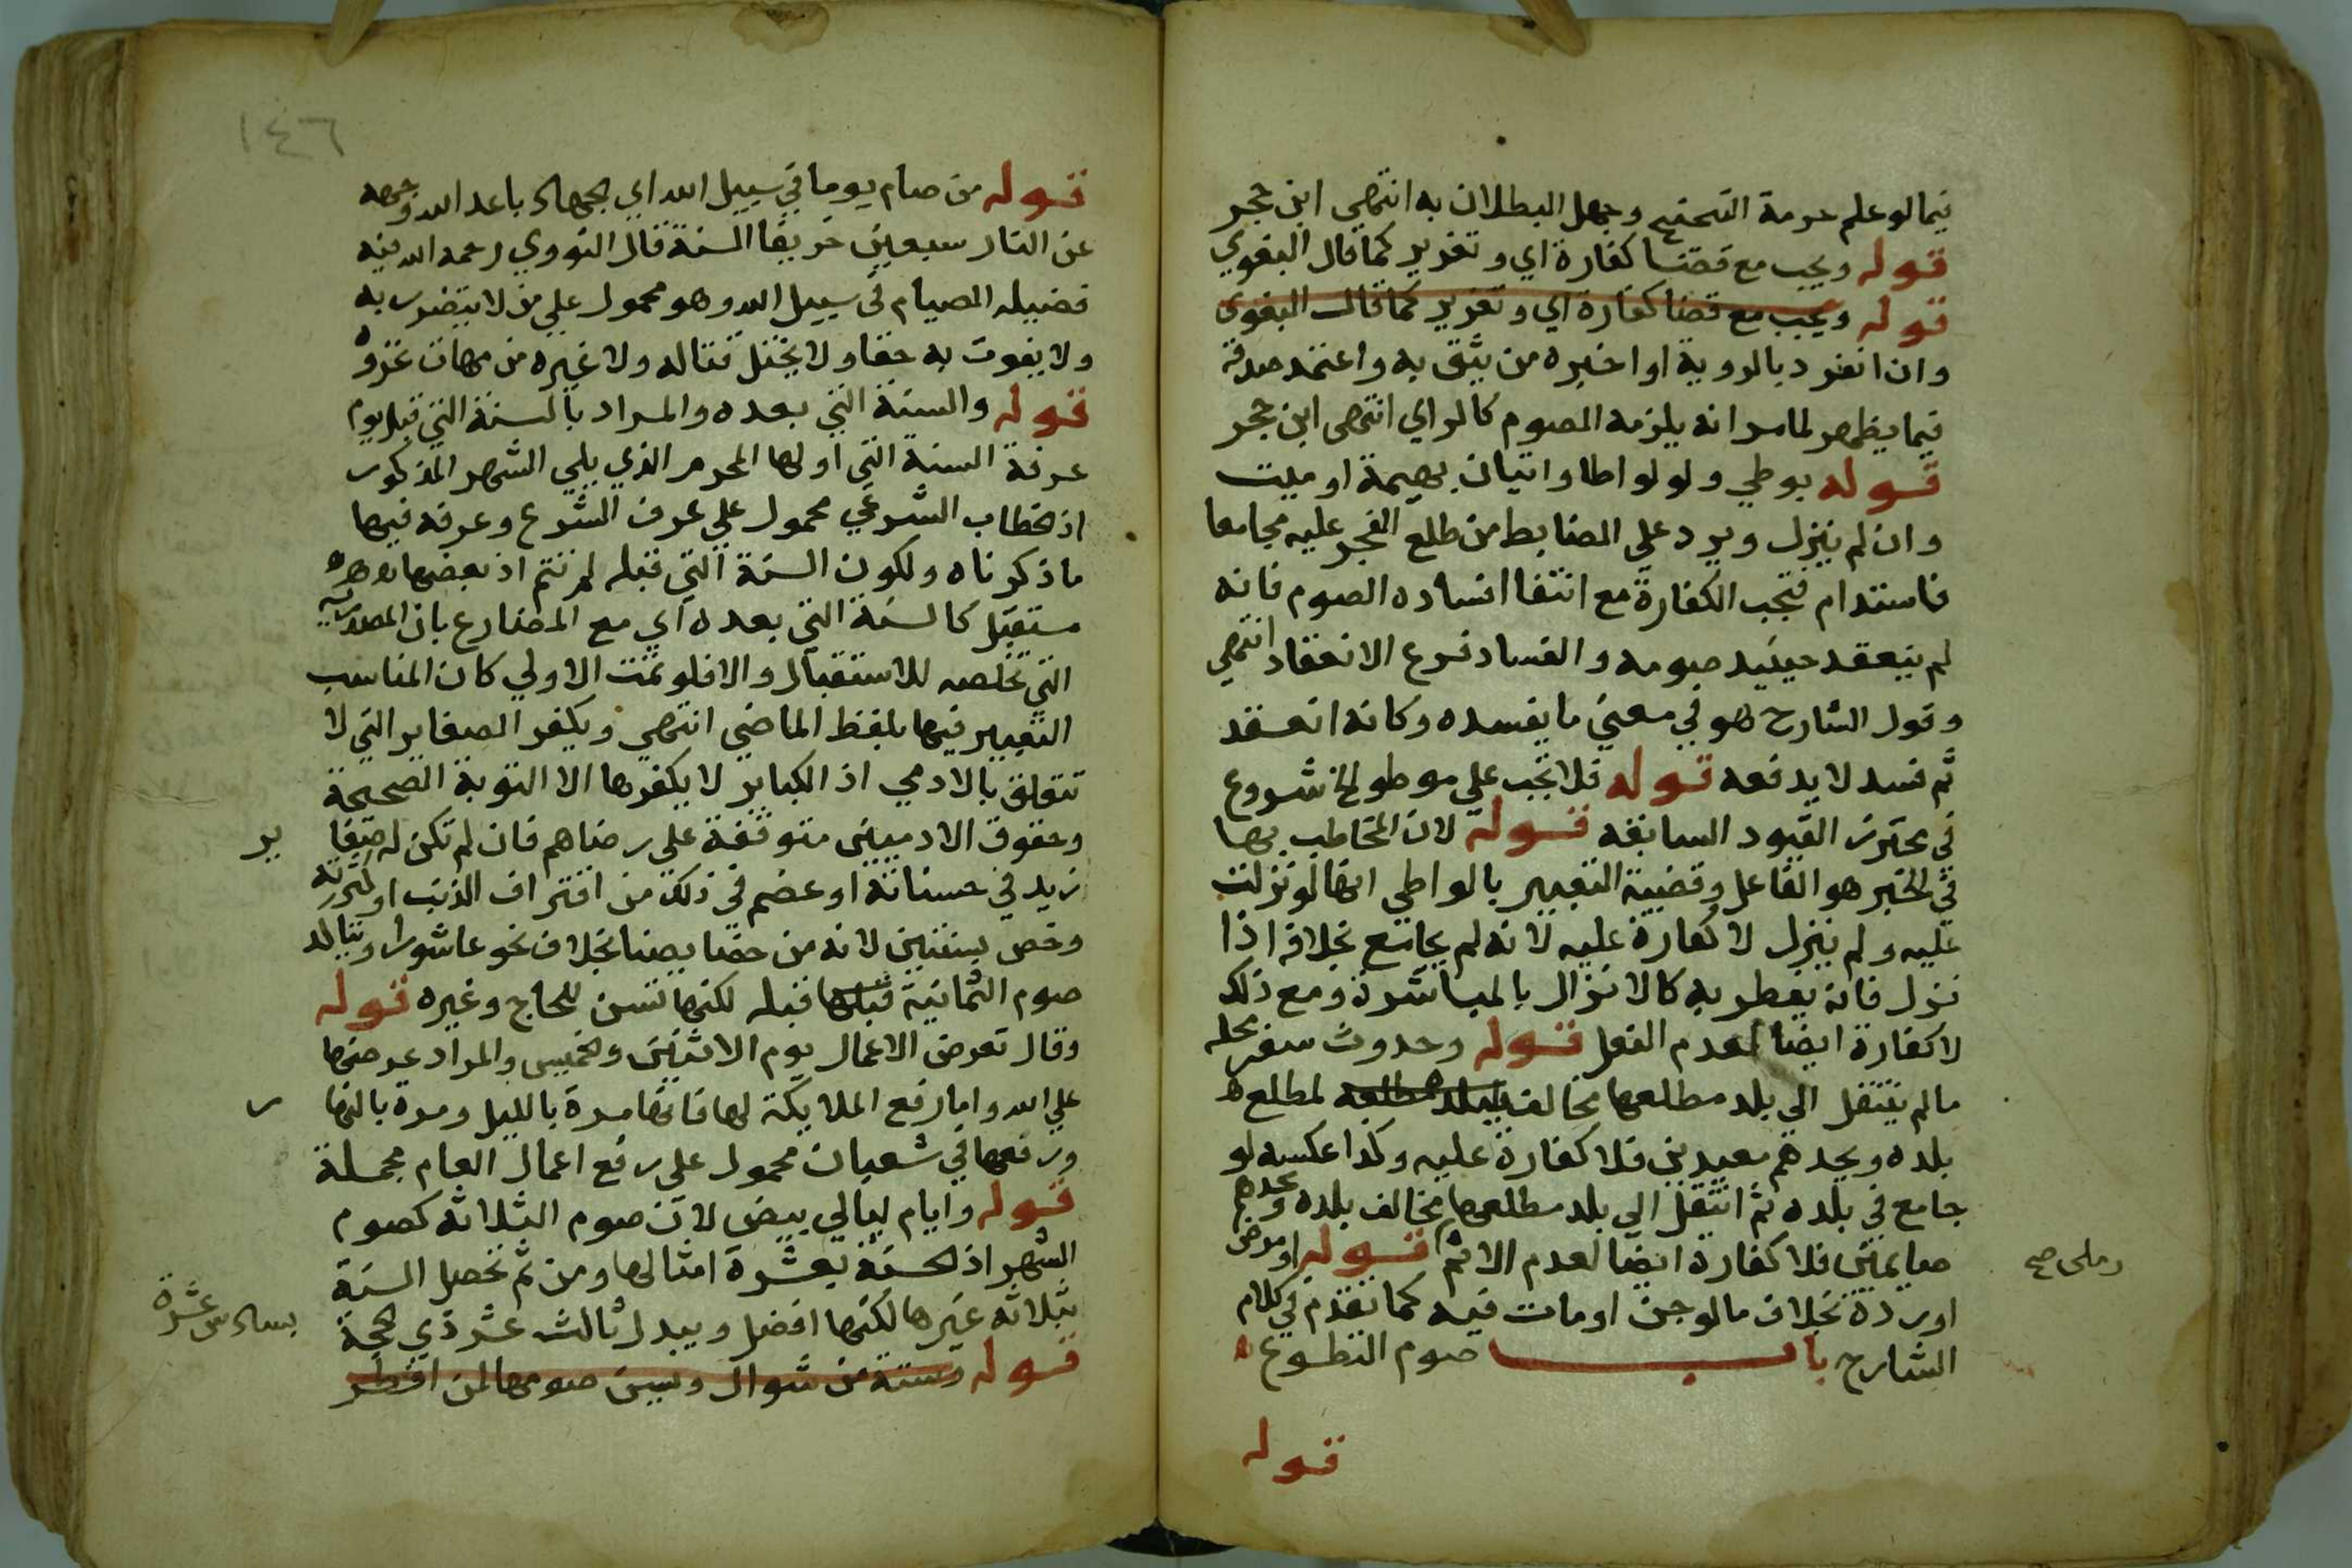 فيما لو علم حرمة التنحنح وجهل البطلان به انتهي ابن حجر
قوله ويجب مع قضا كفارة اي وتعزير كما قال البغوي
قوله ويجب مع قضا كفارة اي وتعزير كما قال البغوي
وان انفرد بالروية او اخبره من يثق به واعتمد صدقه
فيما يظهر لما مر انه يلزمه الصوم كالراي انتهى ابن حجر
قوله بوطي ولو لواطا واتيان بهيمة او ميت
وان لم ينزل ويرد علي الضابط من طلع الفجر عليه مجامعا
فاستدام فتجب الكفارة مع انتفا افساده الصوم فانه
لم ينعقد حينيد صومه والفساد فرع الانعقاد انتهي
وقول الشارح هو في معني ما يفسده وكانه انعقد
ثم فسد لا يدفعه قوله فلا تجب علي موطو الخ شروع
في محترز القيود السابقه قوله لان المخاطب بها
في الخبر هو الفاعل وقضية التعبير بالواطي انها لو نزلت
عليه ولم ينزل لا كفارة عليه لانه لم يجامع بخلافه اذا
نزل فانه يفطر به كالانزال بالمباشرة ومع ذلك
لا كفارة ايضا لعدم الفعل قوله وحدوث سفر محله
ما لم ينتقل الي بلد مطلعها مخالف لبلد مطلعه لمطلع
بلده ويجدهم معيدين فلا كفارة عليه وكذا عكسه لو
جامع في بلده ثم انتقل الي بلد مطلعها مخالف بلده وجدهم
صايمين فلا كفارة ايضا لعدم الاثم قوله او مرض
رملى صح
او ردة بخلاف ما لو جن او مات فيه كما تقدم في كلام
الشارح باب صوم التطوع
قوله
١٤٦
قوله من صام يوما في سبيل الله اي الجهاد باعد الله وجهه
عن النار سبعين خريفا السنة قال النووي رحمه الله فيه
فضيله الصيام في سبيل الله وهو محمول علي من لا يتضرر به
ولا يفوت به حقا ولا يختل قتاله ولا غيره من مهات غزوه
قوله والسنة التي بعده والمراد بالسنة التي قبل يوم
عرفة السنة التي اولها المحرم الذي يلي الشهر المذكور
اذ خطاب الشرعي محمول علي عرف الشرع وعرفه فيها
ما ذكرناه ولكون السنة التي قبله لم تتم اذ بعضها
مستقبل كالسنة التي بعده اي مع المضارع بان المصدريه
التي تخلصه للاستقبال والا فلو تمت الاولي كان المناسب
التعبير فيها بلفظ الماضي انتهي ويكفر الصغاير التي لا
تتعلق بالادمي اذ الكباير لا يكفرها الا التوبة الصحيحة
وحقوق الادميين متوقفة علي رضاهم فان لم تكن له صغا
ير
زيد في حسناته او عصم في ذلك من اقتراف الذنب او
وخص بسنتين لانه من خصايصنا بخلاف نحو عاشورا ويتاكد
صوم الثمانية قبلها قبله لكنها تسن للحاج وغيره قوله
وقال تعرض الاعمال يوم الاثنين والخميس والمراد عرضها
علي الله واما رفع الملايكة لها فانها مرة بالليل ومرة بالنها
ر
ورفعها في شعبان محمول علي رفع اعمال العام مجملة
قوله وايام ليالي بيض لان صوم الثلاثة كصوم
الشهر اذ الحسنة بعشرة امثالها ومن ثم تحصل السنة
بثلاثه غيرها لكنها افضل ويبدل ثالث عشر ذي الحجة
بسادس عشرة
قوله وستة من شوال ويسن صومها لمن افطر